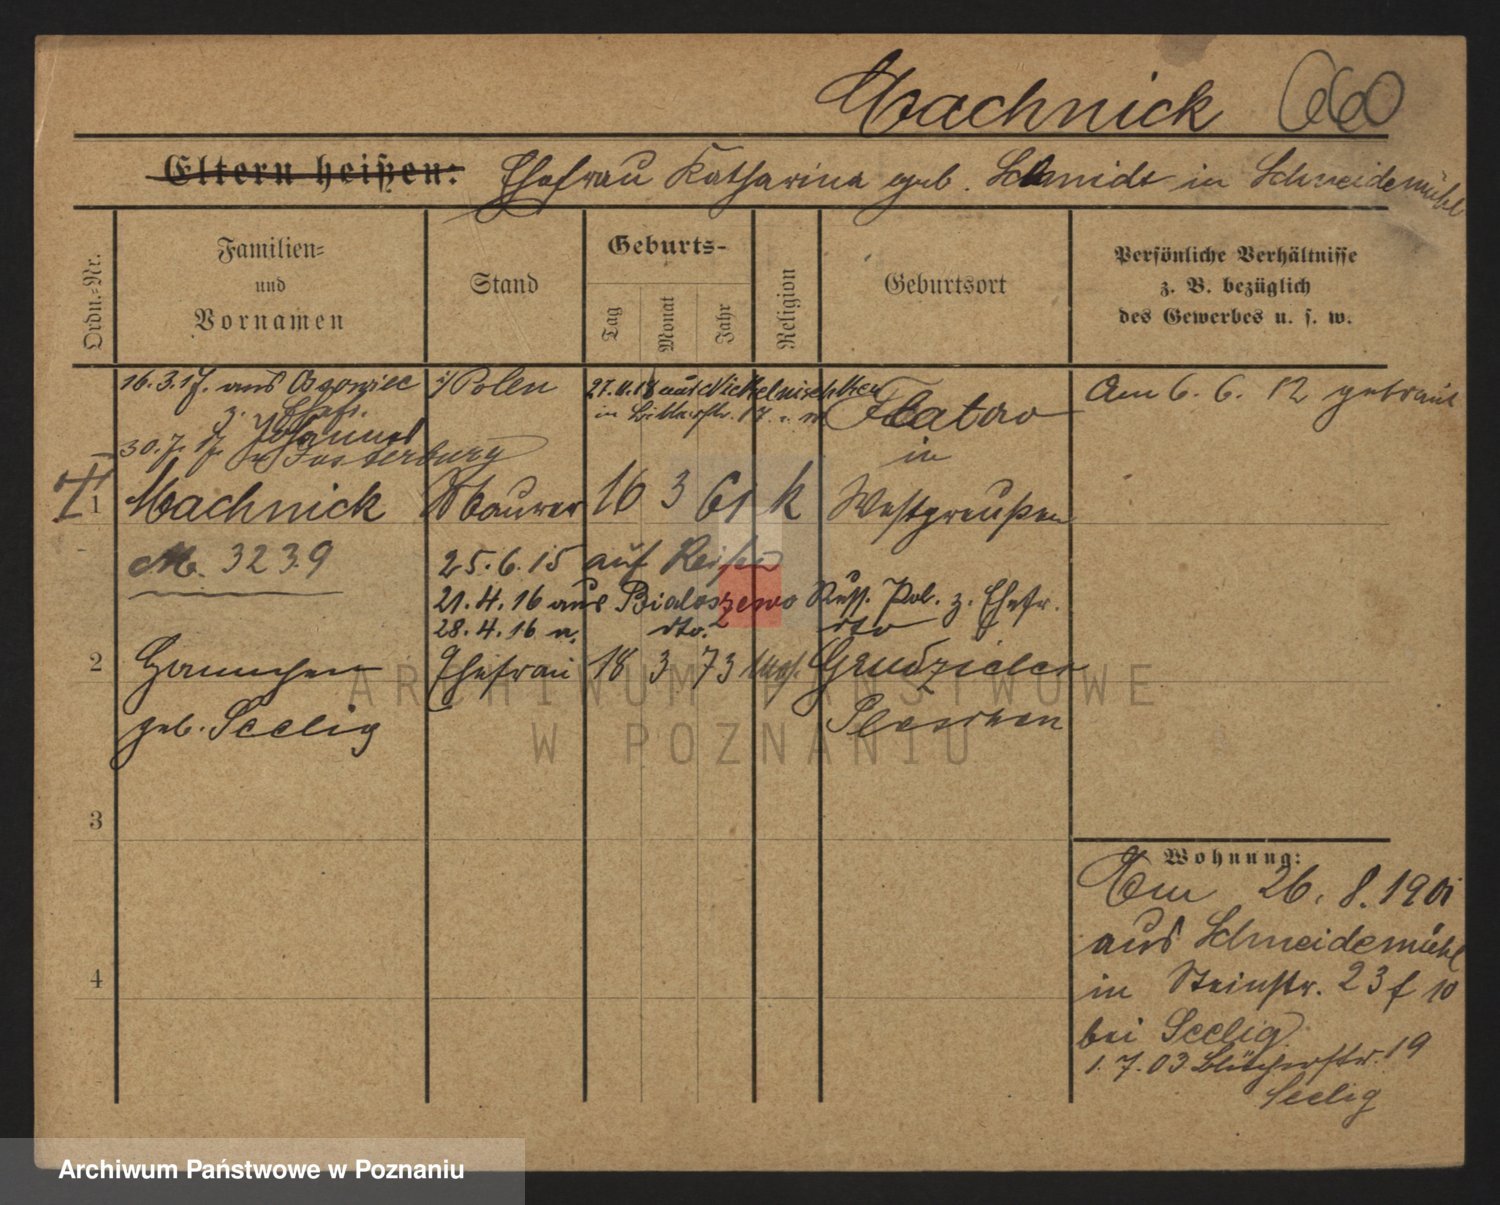 Machnick 660
Eltern heißen: Ehefrau Katharina geb. Schmidt in Schneidemühl
Ordn.-Nr.
Familien-
und
Vornamen
Stand
Geburts-
Tag
Monat
Jahr
Religion
Geburtsort
Persönliche Verhältnisse
z. B. bezüglich
des Gewerbes u. s. w.
16.3.17. aus i/Polen
z. Ehefr.
27.11.18 aus
in
Flatow
Am 6. 6. 12 getraut
Johannes
30.7.17. n. Insterburg
in
1 Machnick Maurer 16 3 61 k Westpreußen
M. 3239
25.6.15 auf Reisen
21.4.16 aus Bialoszewo Russ. Pol. z. Ehefr.
28.4.16 n. dto. dto
2 Hannchen Ehefrau 18 3 73 Grudzielec
geb. Seelig Pleschen
3
4
Wohnung:
Am 26. 8. 1901
aus Schneidemühl
in Steinstr. 23 f 10
bei Seelig
1. 7. 03 Blücherstr. 19
Seelig
ARCHIWUM PAŃSTWOWE
W POZNANIU
Archiwum Państwowe w Poznaniu